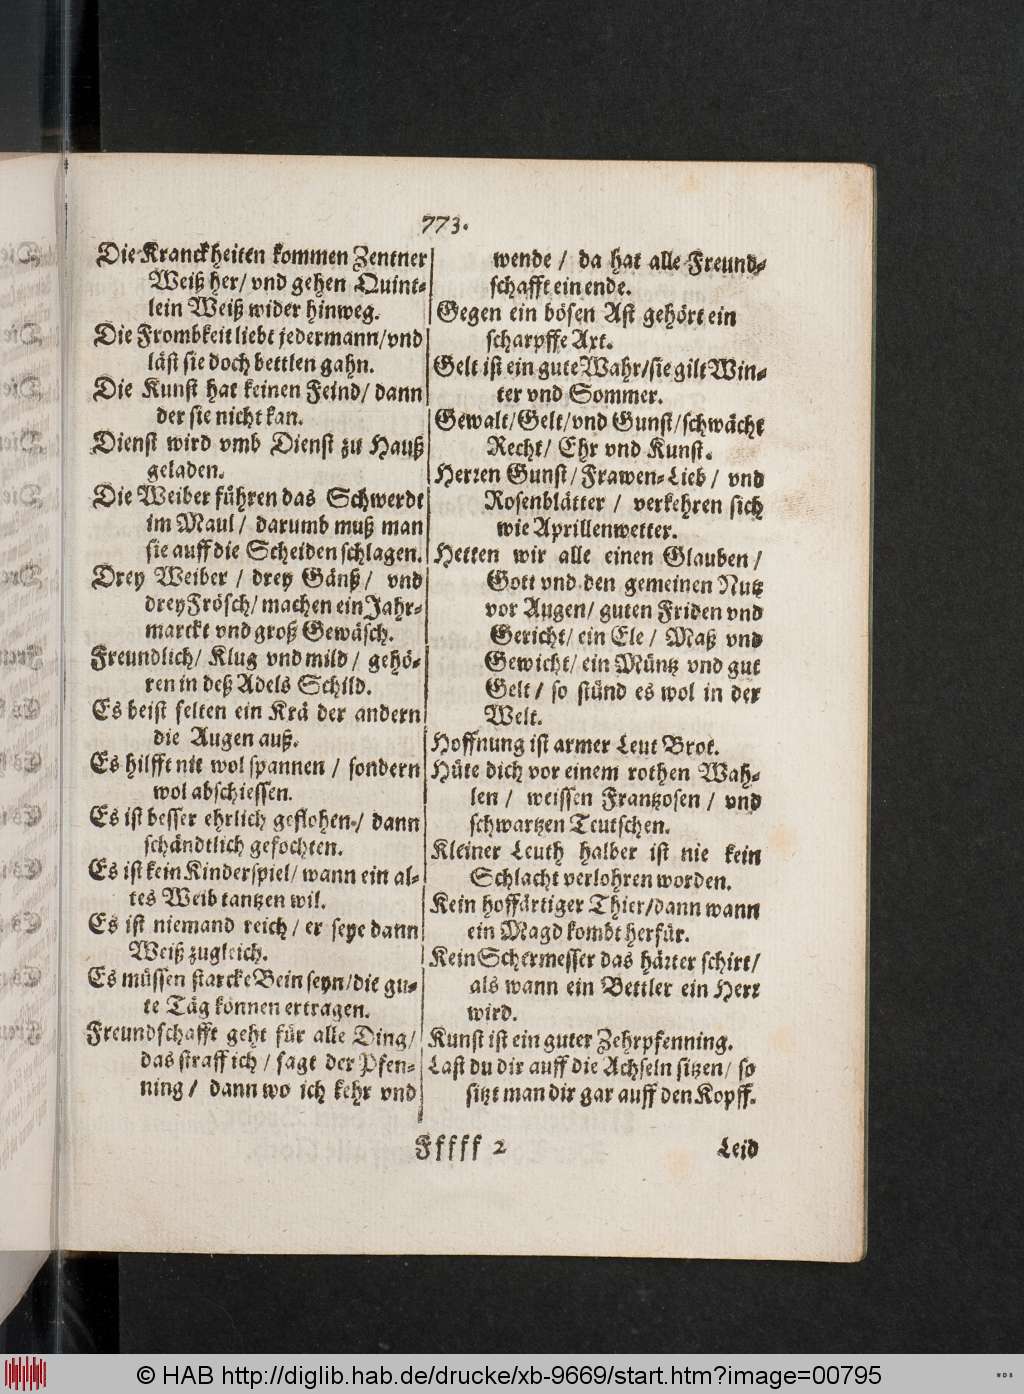 773.
Die Kranckheiten kommen Zentner
Weiß her/ vnd gehen Quint-
lein Weiß wider hinweg.
Die Frombkeit liebt jedermann/vnd
läst sie doch bettlen gahn.
Die Kunst hat keinen Feind/ dann
der sie nicht kan.
Dienst wird vmb Dienst zu Hauß
geladen.
Die Weiber führen das Schwerdt
im Maul/ darumb muß man
sie auff die Scheiden schlagen.
Drey Weiber / drey Gänß/ vnd
drey Frösch/ machen ein Jahr-
marckt vnd groß Gewäsch.
Freundlich/ Klug vnd mild/ gehö-
ren in deß Adels Schild.
Es beist selten ein Krä der andern
die Augen auß.
Es hilfft nit wol spannen / sondern
wol abschiessen.
Es ist besser ehrlich geflohen/ dann
schändtlich gefochten.
Es ist kein Kinderspiel/ wann ein al-
tes Weib tantzen wil.
Es ist niemand reich/ er seye dann
Weiß zugleich.
Es müssen starcke Bein seyn/die gu-
te Täg können ertragen.
Freundschafft geht für alle Ding/
das straff ich/ sagt der Pfen-
ning/ dann wo ich kehr vnd
wende / da hat alle Freund-
schafft ein ende.
Gegen ein bösen Ast gehört ein
scharpffe Axt.
Gelt ist ein gute Wahr/sie gilt Win-
ter vnd Sommer.
Gewalt/Gelt/vnd Gunst/schwächt
Recht/ Ehr vnd Kunst.
Herren Gunst/Frawen-Lieb/ vnd
Rosenblätter / verkehren sich
wie Aprillenwetter.
Hetten wir alle einen Glauben/
Gott vnd den gemeinen Nutz
vor Augen/ guten Friden vnd
Gericht/ ein Ele/ Maß vnd
Gewicht/ ein Müntz vnd gut
Gelt/ so stünd es wol in der
Welt.
Hoffnung ist armer Leut Brot.
Hüte dich vor einem rothen Wah-
len/ weissen Frantzosen/ vnd
schwartzen Teutschen.
Kleiner Leuth halber ist nie kein
Schlacht verlohren worden.
Kein hoffärtiger Thier/dann wann
ein Magd kombt herfür.
Kein Schermesser das härter schirt/
als wann ein Bettler ein Herr
wird.
Kunst ist ein guter Zehrpfenning.
Last du dir auff die Achseln sitzen/ so
sitzt man dir gar auff den Kopff.
Fffff 2
Leid
© HAB http://diglib.hab.de/drucke/xb-9669/start.htm?image=00795